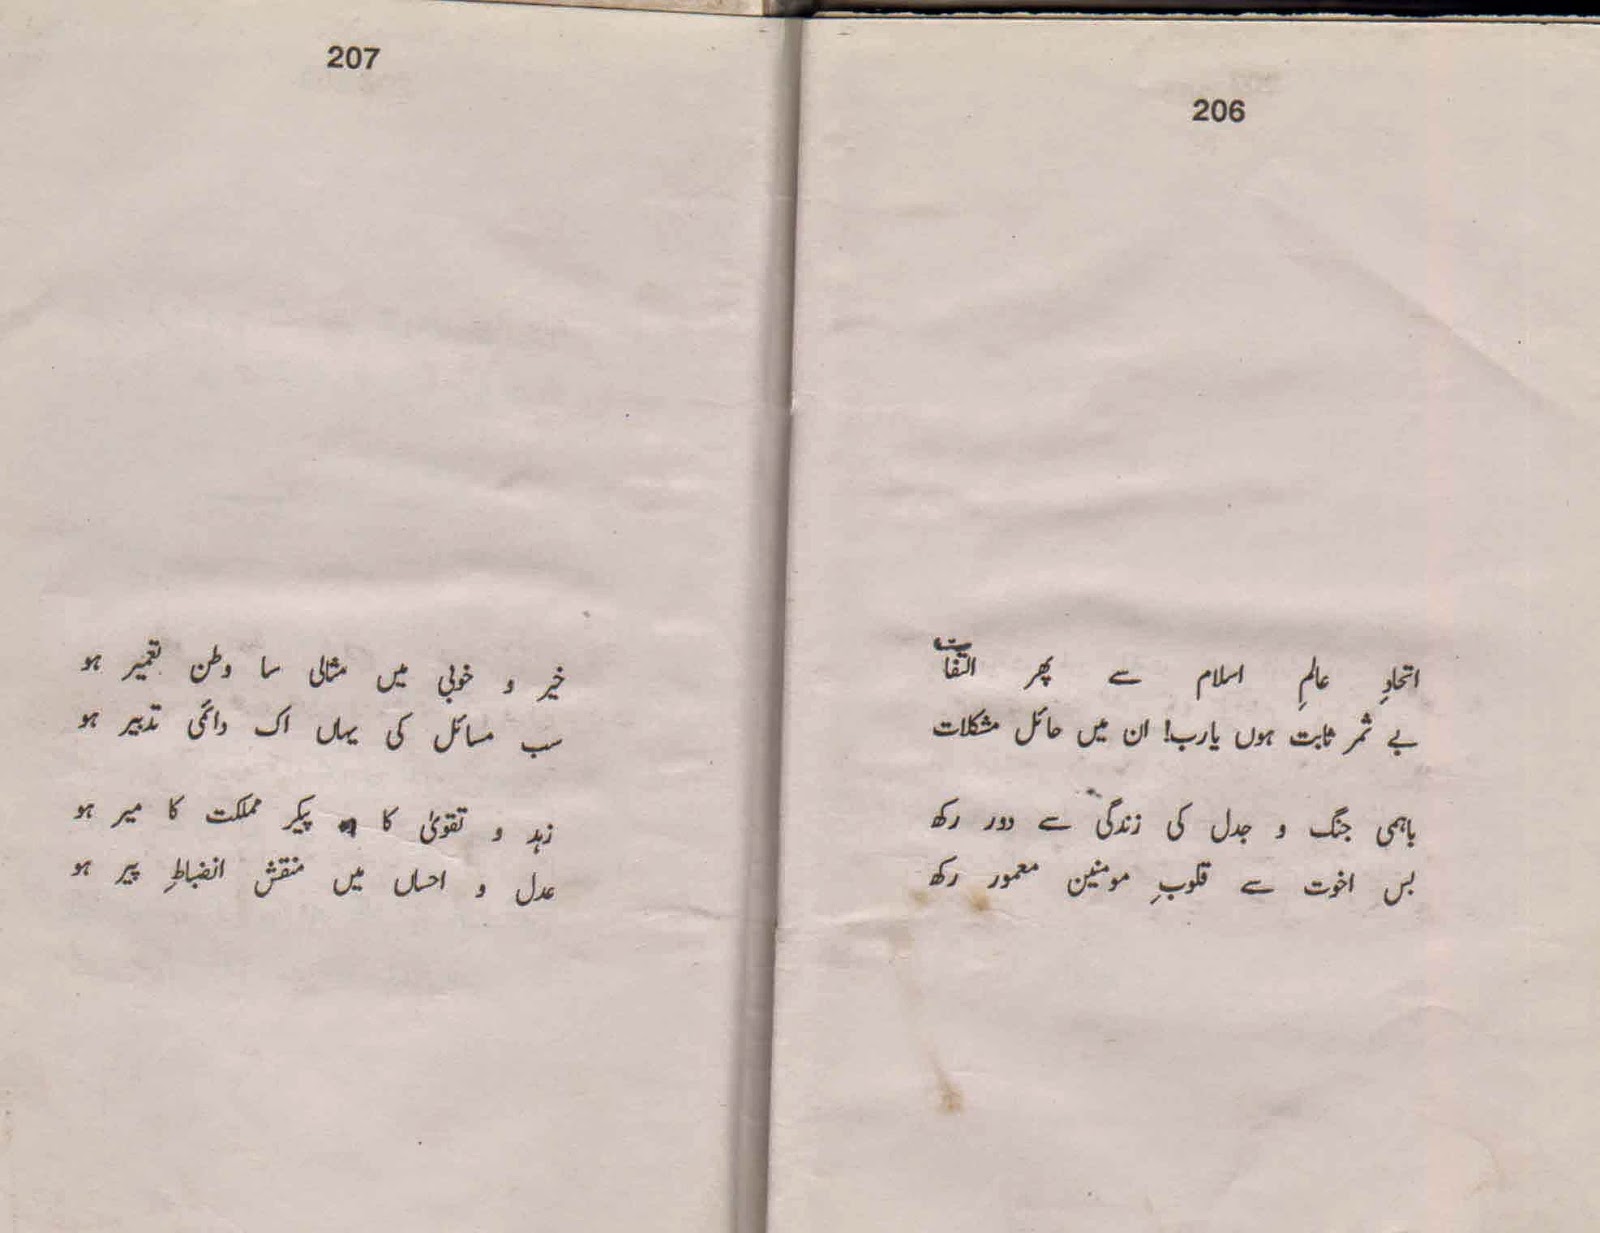 206
اتحادِ عالمِ اسلام سے پھر التفات
بے ثمر ثابت ہوں یارب! ان میں حائل مشکلات
باہمی جنگ و جدل کی زندگی سے دور رکھ
بس اخوت سے قلوبِ مومنین معمور رکھ
207
خیر و خوبی میں مثالی سا وطن تعمیر ہو
سب مسائل کی یہاں اک دائمی تدبیر ہو
زہد و تقویٰ کا پیکر مملکت کا میر ہو
عدل و احساں میں منقش انضباطِ پیر ہو